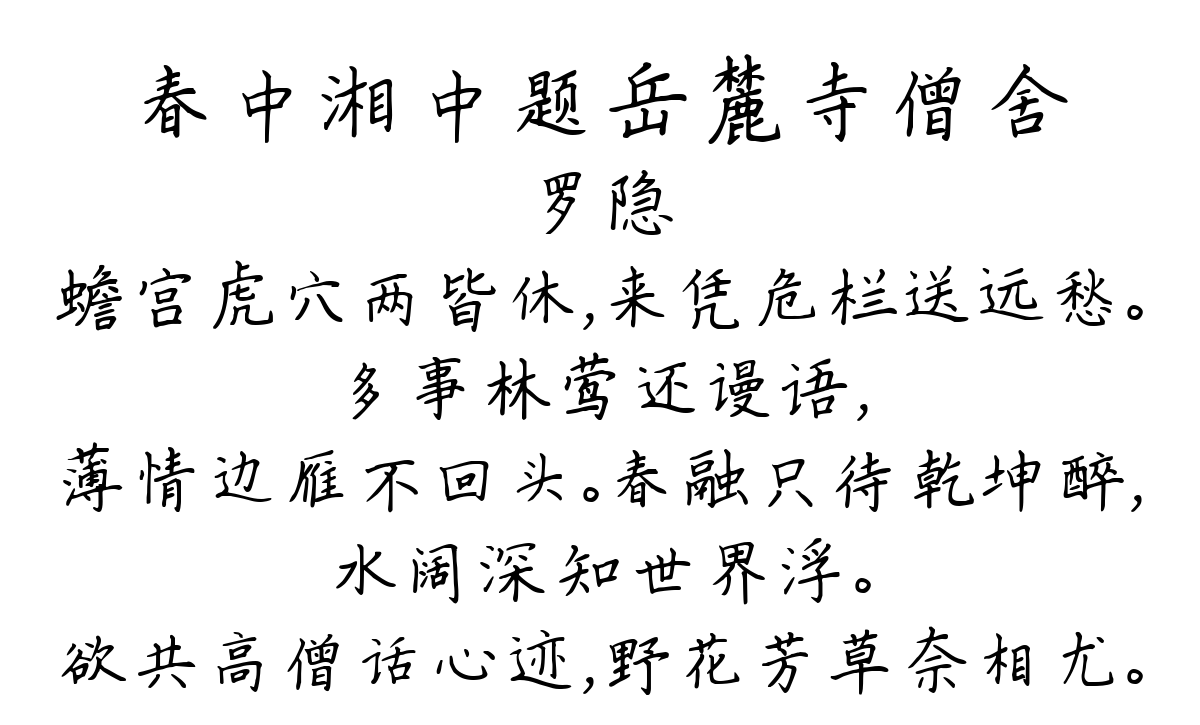 春中湘中题岳麓寺僧舍
罗隐
蟾宫虎穴两皆休,来凭危栏送远愁。
多事林莺还谩语,
薄情边雁不回头。春融只待乾坤醉,
水阔深知世界浮。
欲共高僧话心迹,野花芳草奈相尤。